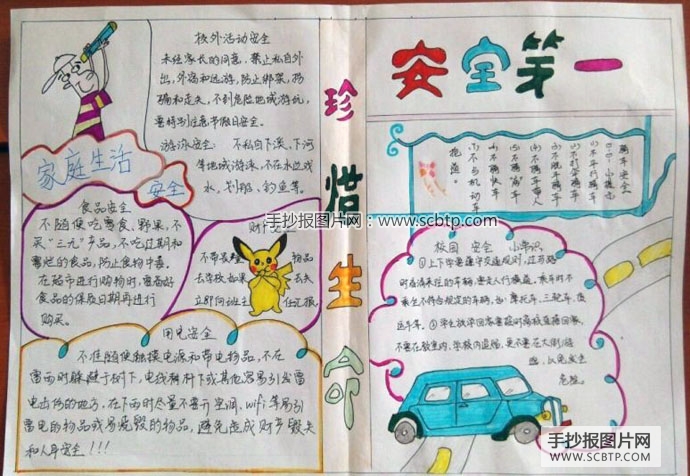 校外活动安全
未经家长的同意，禁止私自外
出，外宿和远游，防止绑架，拐
骗和走失，不到危险地域游玩，
要特别注意节假日安全。
游泳安全： 不私自下溪、下河
等地域游泳，不在水边戏
水、划船、钓鱼等。
家庭生活
安全
食品安全
不随便吃零食、野果，不
买“三无”产品，不吃过期和
霉烂的食品，防止食物中毒。
在超市进行购物时，查看好
食品的保质日期再进行
购买。
财产安全
不带贵重
物品
去学校如果
丢失
立即向班主
任汇报
用电安全
不准随便触摸电源和带电物品，不在
雷雨时躲避于树下，电线杆下或其他容易引发雷
电击伤的地方，在下雨时尽量不要开空调、wifi等易引
雷电的物品或易烧毁的物品，避免造成财产毁失
和人身安全！！！
珍惜生命
安全第一
骑车安全
小提示
抢道。
校园 安全 小常识
①上下学要遵守交通规则，过马路
时看清来往的车辆，要走人行横道，乘车时不
乘坐不符合规定的车辆，如：摩托车、三轮车、货
运车等。
②学生放学回家要按时离校直接回家，
不要在教室内、学校内逗留，更不要在大街游
逛，以免发生
危险。
手抄报图片网：www.scbtp.com
手抄报图片网
SCBTP.COM